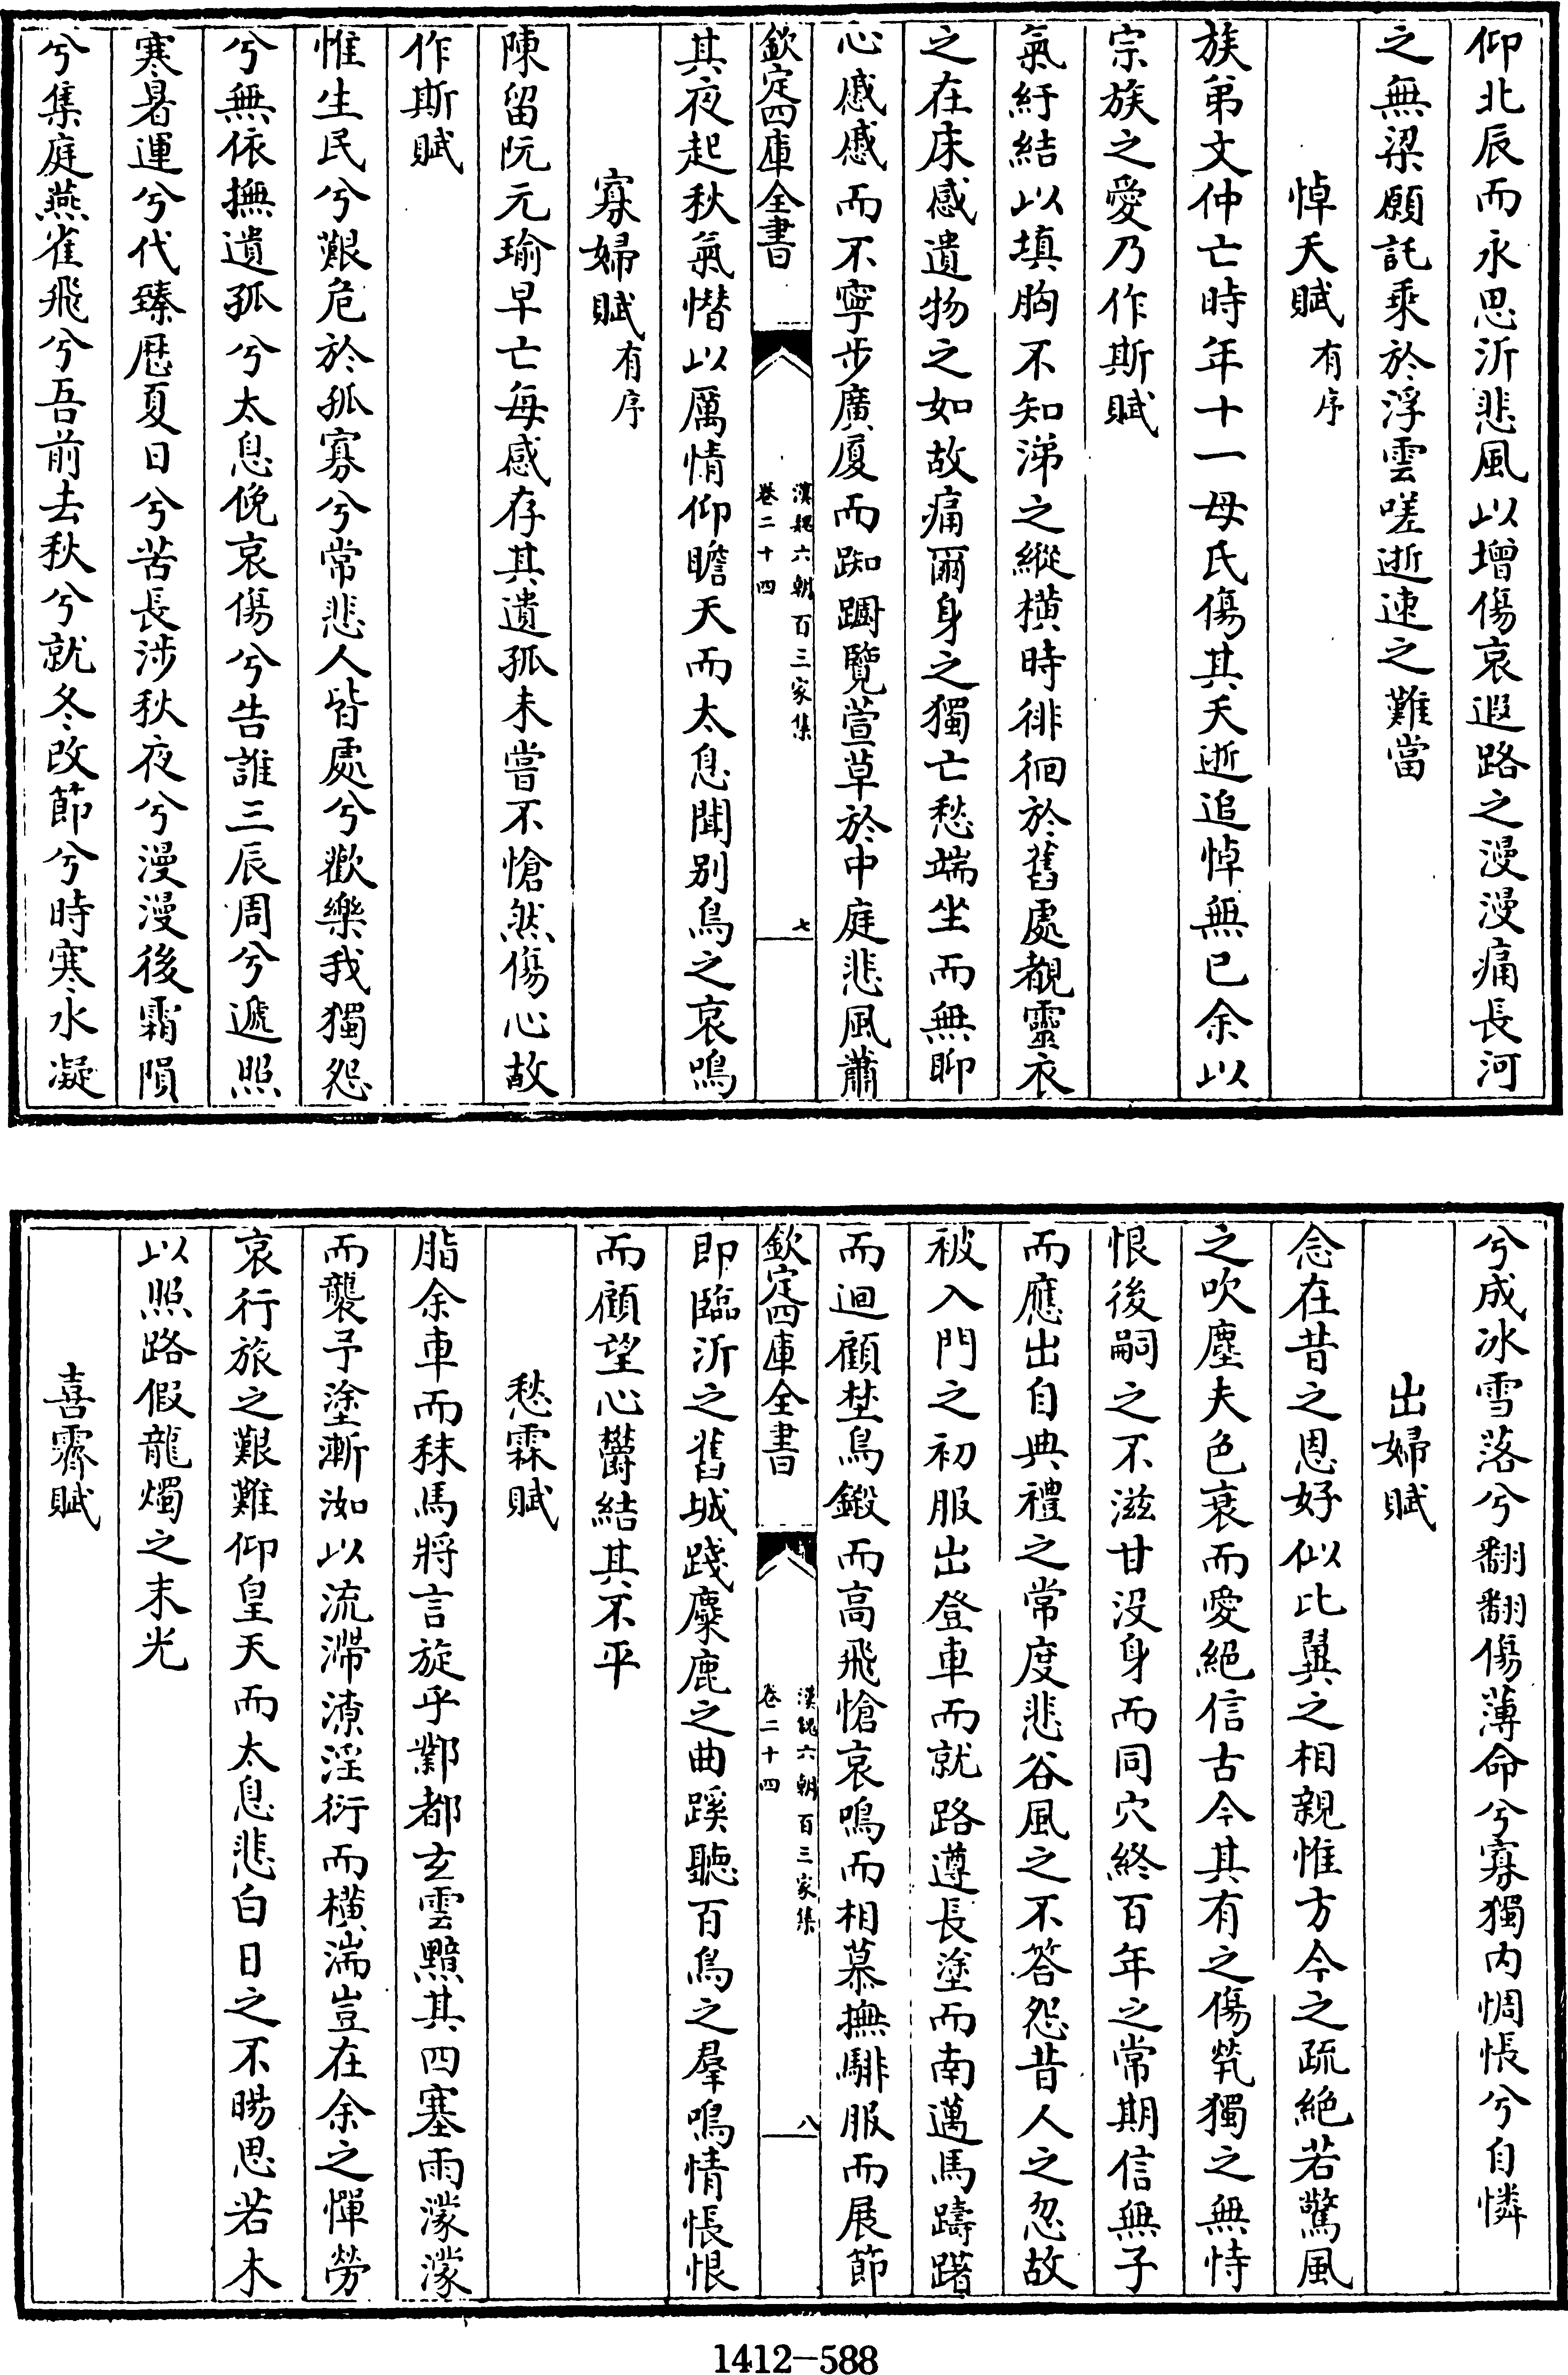 仰北辰而永思泝悲風以增傷哀遐路之漫漫痛長河
之無梁願託乘於浮雲嗟逝速之難當
悼夭賦有序
族弟文仲亡時年十一母氏傷其夭逝追悼無已余以
宗族之愛乃作斯賦
氣紆結以填胸不知涕之縱橫時徘徊於舊處覩靈衣
之在床感遺物之如故痛爾身之獨亡愁端坐而無聊
心慼慼而不寧步廣廈而踟躕覽萱草於中庭悲風蕭
欽定四庫全書
漢魏六朝百三家集
卷二十四
七
其夜起秋氣憯以厲情仰瞻天而太息聞别鳥之哀鳴
寡婦賦有序
陳留阮元瑜早亡每感存其遺孤未嘗不愴然傷心故
作斯賦
惟生民兮艱危於孤寡兮常悲人皆處兮歡樂我獨怨
兮無依撫遺孤兮太息俛哀傷兮告誰三辰周兮遞照
寒暑運兮代臻歴夏日兮苦長涉秋夜兮漫漫後霜隕
兮集庭燕雀飛兮吾前去秋兮就冬改節兮時寒水凝
兮成冰雪落兮翻翻傷薄命兮寡獨内惆悵兮自憐
出婦賦
念在昔之恩好似比翼之相親惟方今之疏絶若驚風
之吹塵夫色衰而愛絕信古今其有之傷煢獨之無恃
恨後嗣之不滋甘没身而同穴終百年之常期信無子
而應出自典禮之常度悲谷風之不答怨昔人之忽故
被入門之初服出登車而就路遵長塗而南邁馬躊躇
而迴顧埜鳥鎩而高飛愴哀鳴而相慕撫騑服而展節
欽定四庫全書
漢魏六朝百三家集
卷二十四
八
即臨沂之舊城踐麋鹿之曲蹊聽百鳥之羣鳴情悵恨
而顧望心鬱結其不平
愁霖賦
脂余車而秣馬將言旋乎鄴都玄雲黯其四塞雨濛濛
而襲予塗漸洳以流滯潦淫衍而橫湍豈在余之憚勞
哀行旅之艱難仰皇天而太息悲白日之不暘思若木
以照路假龍燭之末光
喜霽賦
1412—588